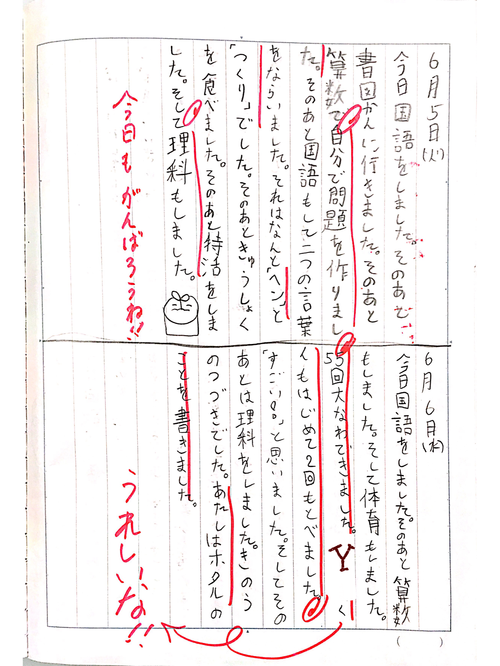 6月5日(火)
今日国語をしました。そのあと
書図かんに行きました。そのあと
算数で自分で問題を作りまし
た。そのあと国語もして二つの言葉
をならいました。それはなんと「ヘン」と
「つくり」でした。そのあときゅうしょく
を食べました。そのあと特活をしま
した。そして理科もしました。
今日もがんばろうね!!
6月6日(木)
今日国語をしました。そのあと算数
もしました。そして体育もしました。
55回大なわできました。Yく
んもはじめて2回もとべました。
「すごい。」と思いました。そしてその
あとは理科をしました。きのう
のつづきでした。あたしはホタルの
ことを書きました。
うれしいな!!